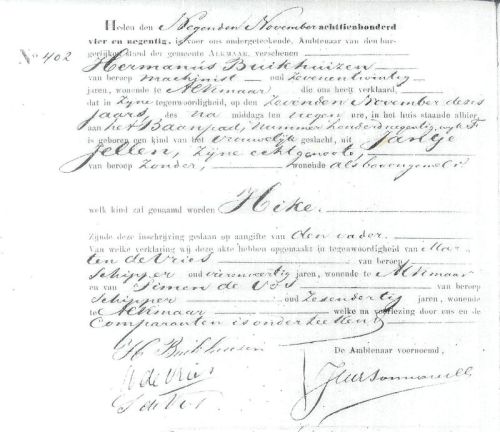 Heden den Negenden November achttienhonderd
vier en negentig, is voor ons ondergeteekende, Ambtenaar van den bur-
gerlijken stand der gemeente ALKMAAR, verschenen
No 402
Hermanus Buikhuizen
van beroep machinist oud Zevenentwintig
jaren, wonende te Alkmaar die ons heeft verklaard,
dat in Zijne tegenwoordigheid, op den Zevenden November dezes
jaars, des na middags ten negen ure, in het huis staande alhier
aan het Baanpad, nummer honderd negentig, wyk F
is geboren een kind van het vrouwelijk geslacht, uit Jantje
Jellen, Zijne echtgenoote,
van beroep Zonder, wonende als bovengemeld
welk kind zal genaamd worden Hike.
Zijnde deze inschrijving geslaan op aangifte van den vader.
Van welke verklaring wij deze akte hebben opgemaakt in tegenwoordigheid van Mar-
ten de Vries van beroep
Schipper oud vierenveertig jaren, wonende te Alkmaar
en van Simen de Vos van beroep
Schipper oud Zesendertig jaren, wonende
te Alkmaar welke na voorlezing door ons en de
Comparanten is onderteekend
H Buikhuizen
De Ambtenaar voornoemd,
M de Vries
S de Vos